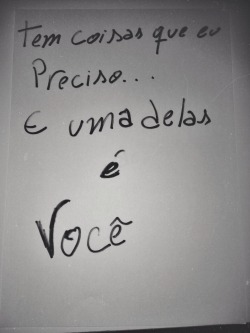 Tem coisas que eu
Preciso...
E uma delas
é
Você